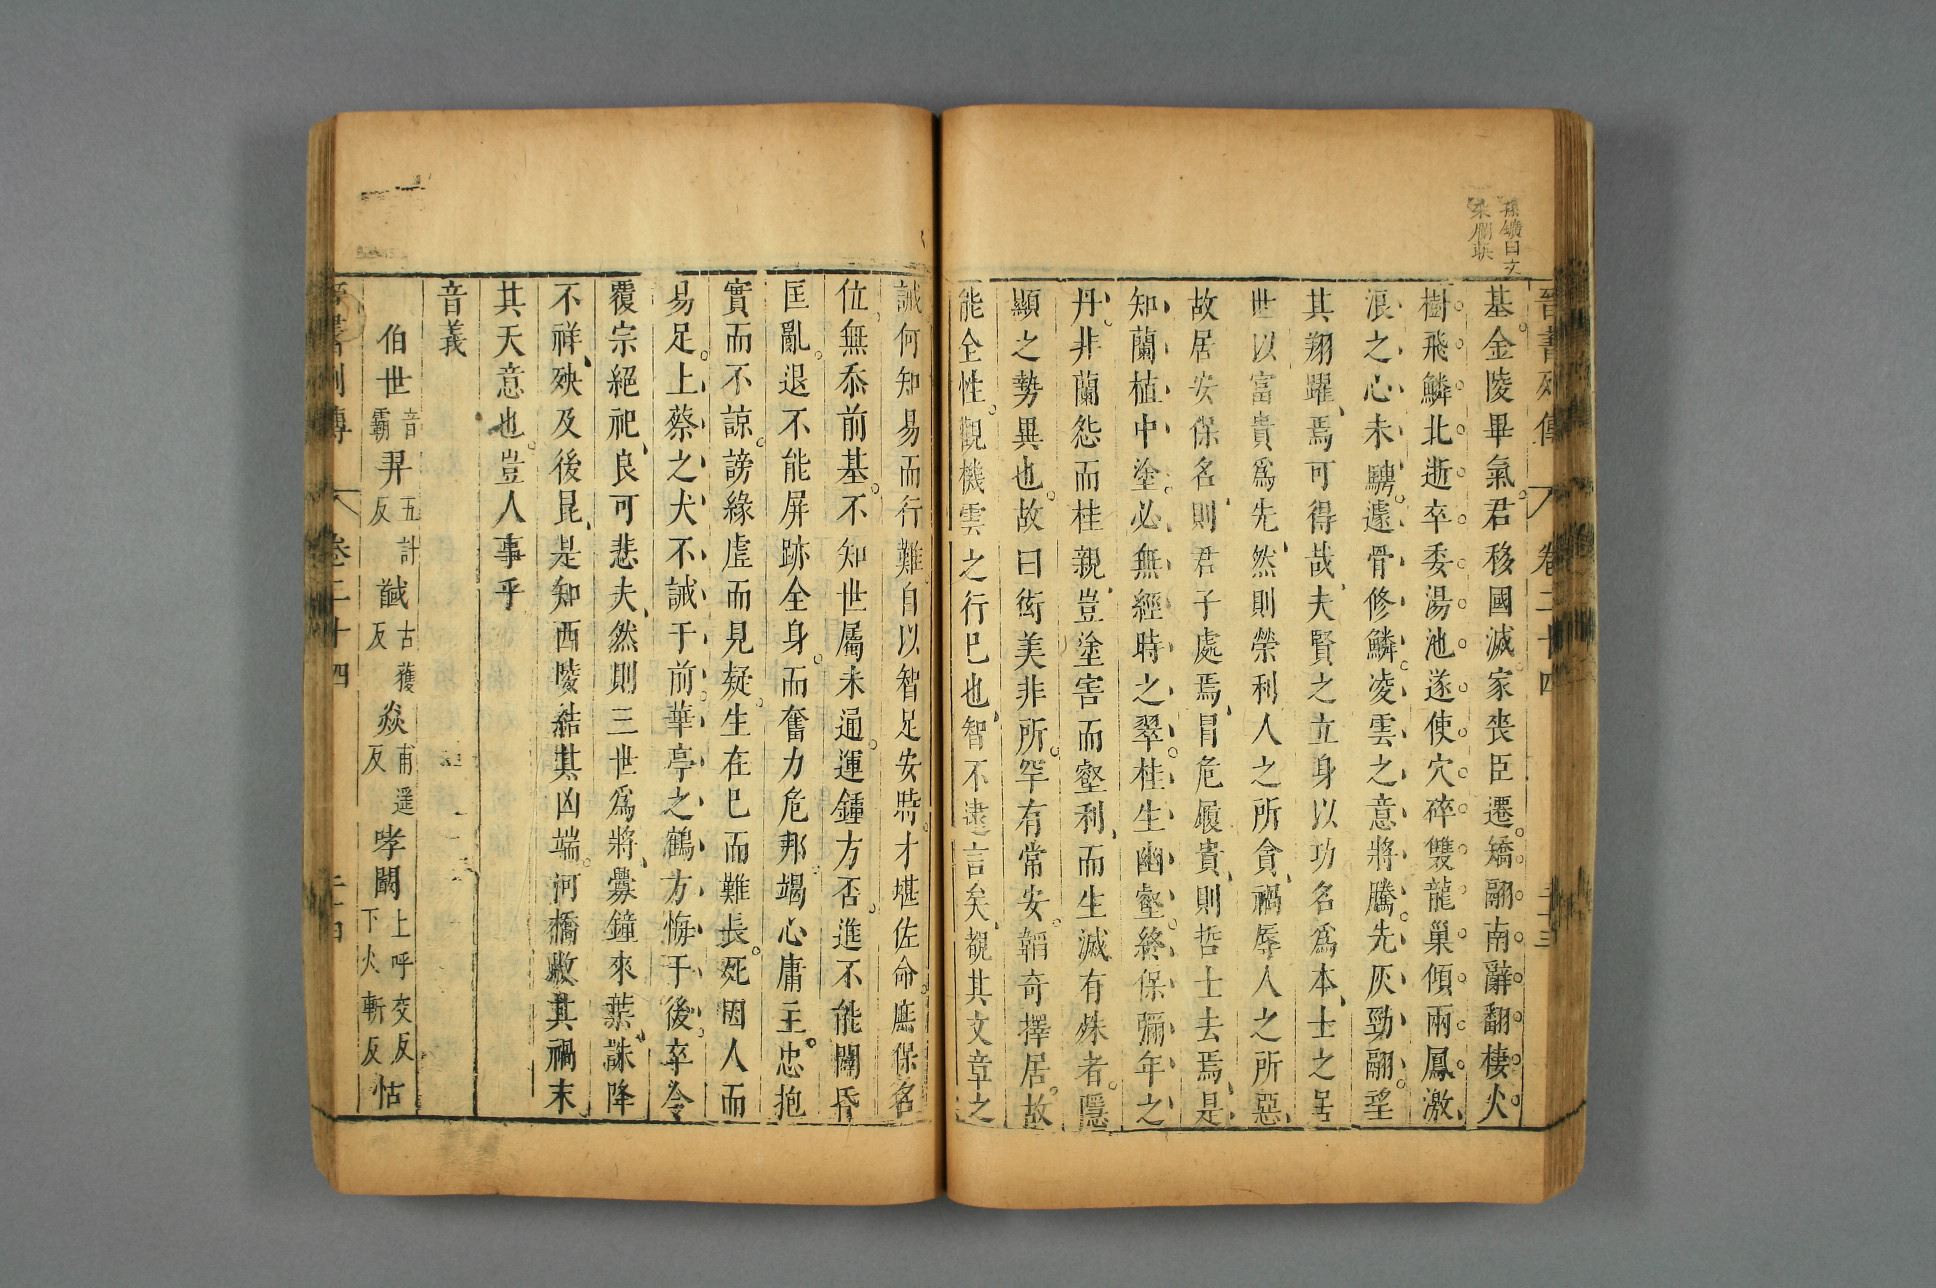 孫鑛曰文
采爛㷼
晉書列傳 卷二十四 二十三
基。金陵畢氣。君移國滅。家喪臣遷。矯翮南辭。翻棲火
樹。飛鱗北逝。卒委湯池。遂使穴碎雙龍。巢傾兩鳳。激
浪之心未騁。遽骨修鱗。凌雲之意將騰。先灰勁翮。望
其翔躍、焉可得哉、夫賢之立身以功名爲本、士之居
世以富貴爲先、然則榮利人之所貪、禍辱人之所惡、
故居安保名、則君子處焉、冒危履貴、則哲士去焉、是
知蘭植中塗。必無經時之翠。桂生幽壑。終保彌年之
丹、非蘭怨而桂親、豈塗害而壑利、而生滅有殊者。隱
顯之勢異也。故曰衒美非所。罕有常安。韜奇擇居。故
能全性。觀機雲之行巳也、智不逮言矣、覩其文章之
誡何知易而行難。自以智足安時。才堪佐命。庶保名
位。無忝前基。不知世屬未通。運鍾方否。進不能闢昏
匡亂。退不能屏跡全身。而奮力危邦。竭心庸主。忠抱
實而不諒。謗緣虛而見疑。生在巳而難長。死因人而
易足。上蔡之犬不誡于前。華亭之鶴方悔于後。卒令
覆宗絕祀、良可悲夫、然則三世爲將、釁鐘來葉、誅降
不祥、殃及後昆、是知西陵結其凶端。河橋收其禍末
其天意也。豈人事乎
音義
伯世音霸 羿五計反 馘古獲反 猋甫遥反 哮闞上呼交反下火斬反 怙
晉書列傳 卷二十四 二十四